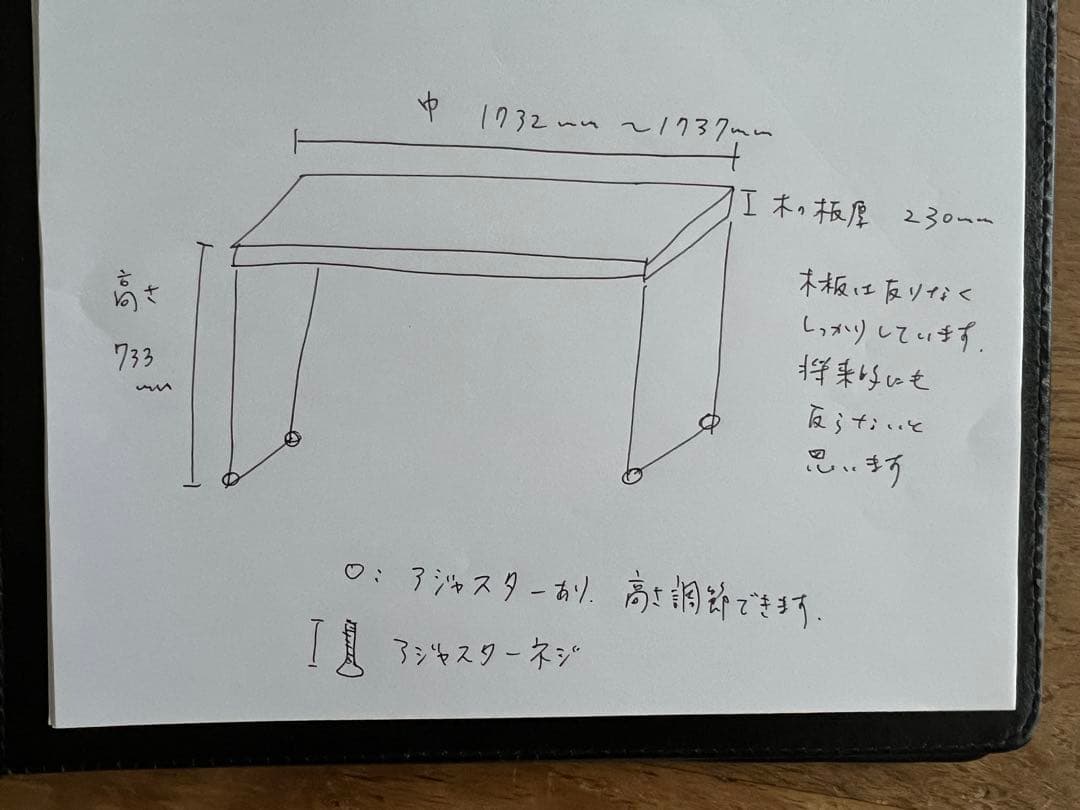 巾 1732mm 〜1737mm
木の板厚 230mm
高さ
733
mm
木板は反りなく
しっかりしています.
将来的にも
反らないと
思います
○: アジャスターあり. 高さ調節できます.
アジャスターネジ